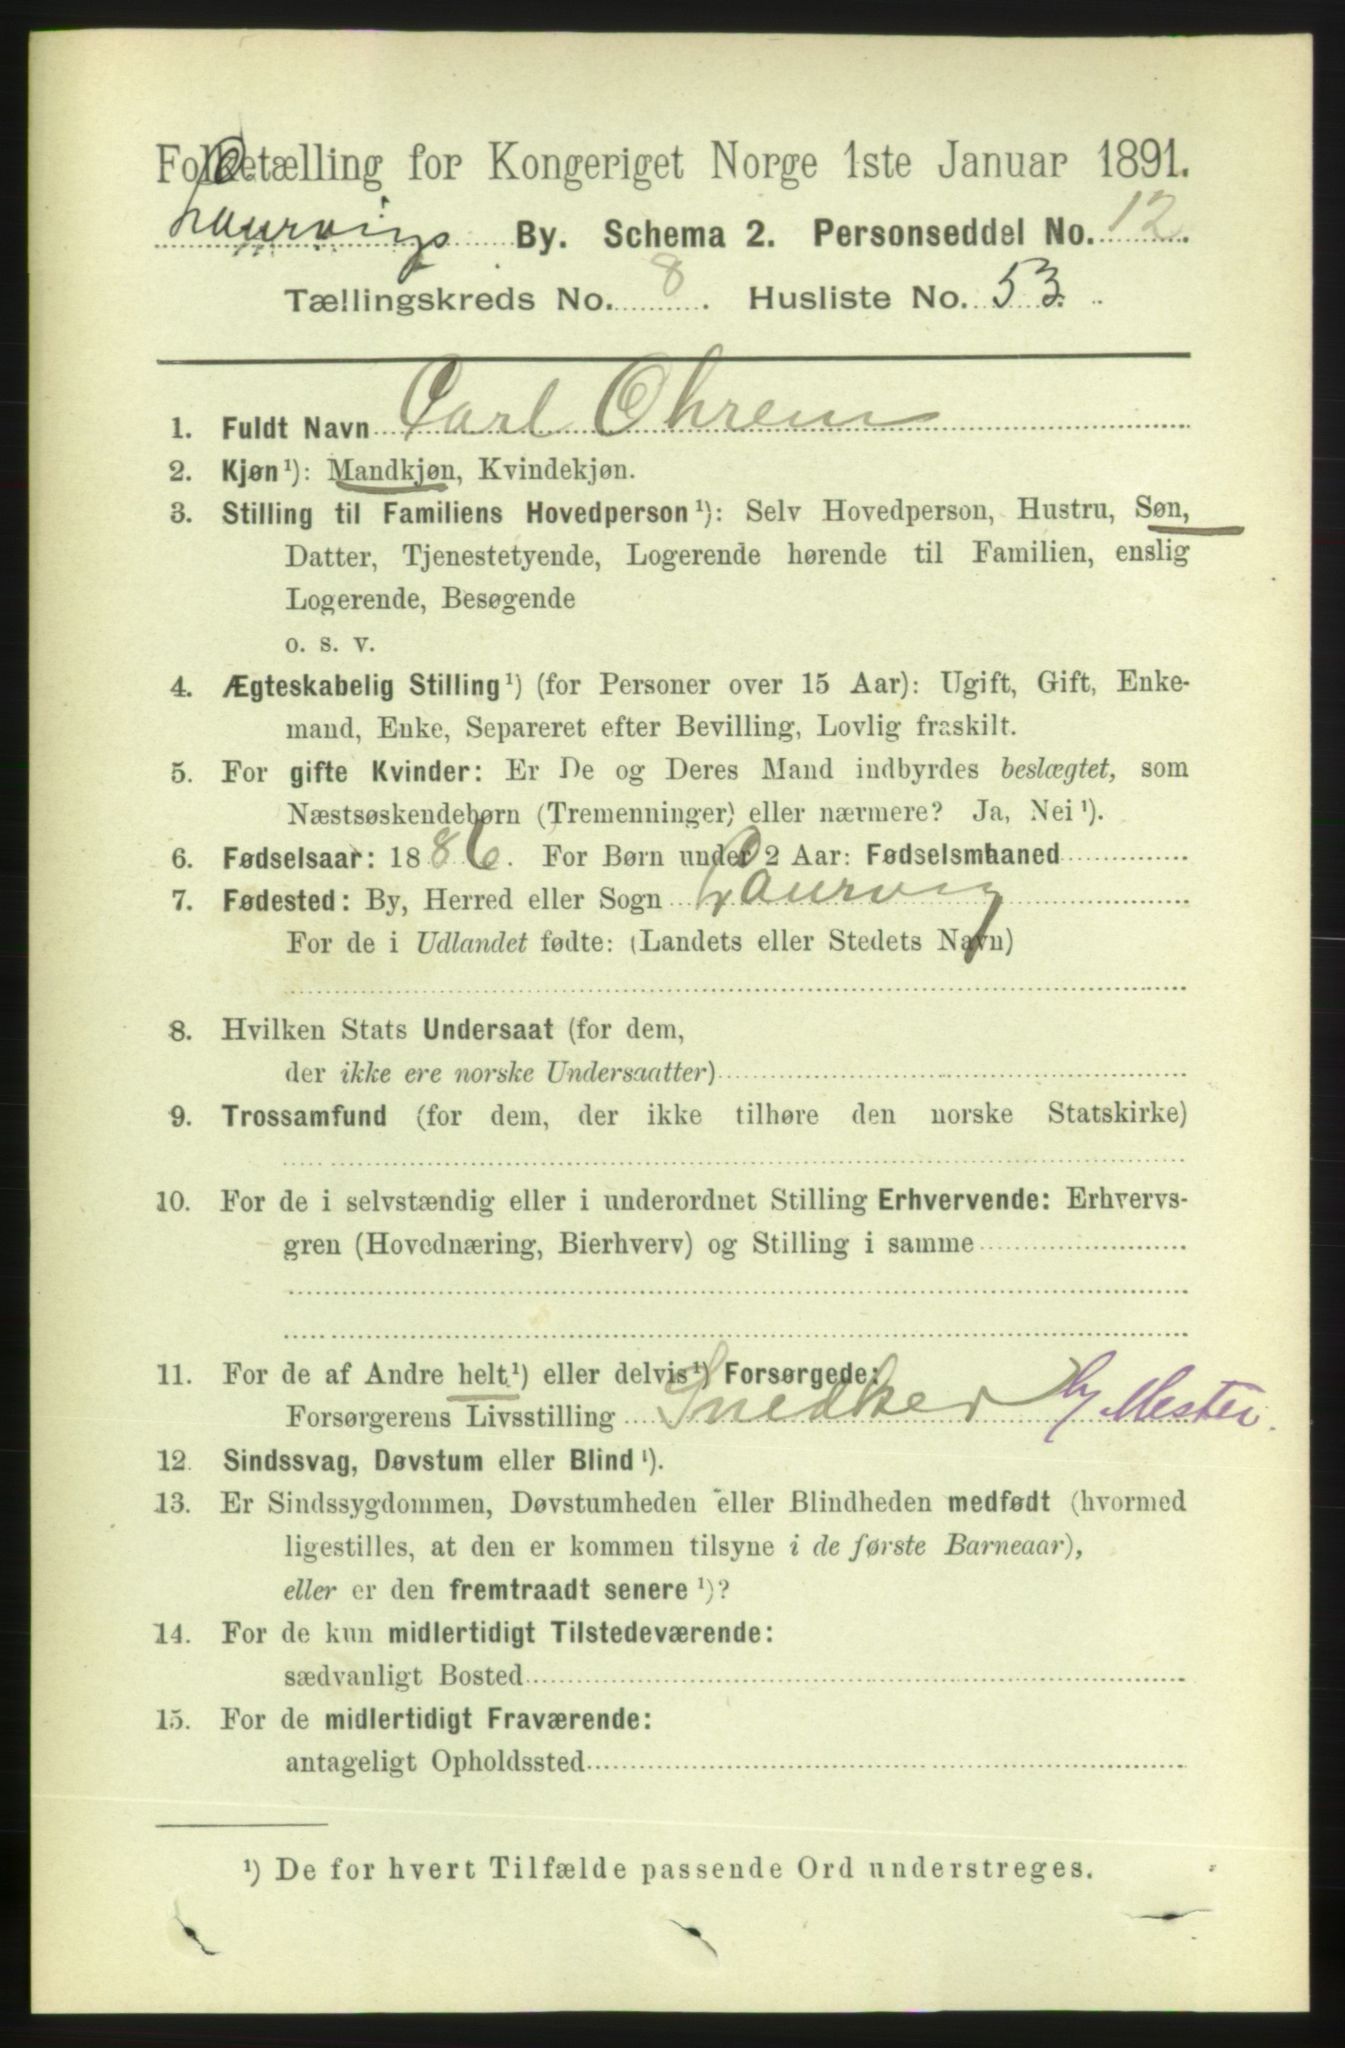 Folketælling for Kongeriget Norge 1ste Januar 1891.
Laurvigs By. Schema 2. Personseddel No. 12.
Tællingskreds No. 8. Husliste No. 53.
1. Fuldt Navn Carl Ohrem
2. Kjøn¹): Mandkjøn, Kvindekjøn.
3. Stilling til Familiens Hovedperson¹): Selv Hovedperson, Hustru, Søn,
Datter, Tjenestetyende, Logerende hørende til Familien, enslig
Logerende, Besøgende
o. s. v.
4. Ægteskabelig Stilling¹) (for Personer over 15 Aar): Ugift, Gift, Enke-
mand, Enke, Separeret efter Bevilling, Lovlig fraskilt.
5. For gifte Kvinder: Er De og Deres Mand indbyrdes beslægtet, som
Næstsøskendebørn (Tremenninger) eller nærmere? Ja, Nei¹).
6. Fødselsaar: 1886. For Børn under 2 Aar: Fødselsmaaned
7. Fødested: By, Herred eller Sogn Laurvig
For de i Udlandet fødte: (Landets eller Stedets Navn)
8. Hvilken Stats Undersaat (for dem,
der ikke ere norske Undersaatter)
9. Trossamfund (for dem, der ikke tilhøre den norske Statskirke)
10. For de i selvstændig eller i underordnet Stilling Erhvervende: Erhvervs-
gren (Hovednæring, Bierhverv) og Stilling i samme
11. For de af Andre helt¹) eller delvis¹) Forsørgede:
Forsørgerens Livsstilling Snedker Mester.
12. Sindssvag, Døvstum eller Blind¹).
13. Er Sindssygdommen, Døvstumheden eller Blindheden medfødt (hvormed
ligestilles, at den er kommen tilsyne i de første Barneaar),
eller er den fremtraadt senere¹)?
14. For de kun midlertidigt Tilstedeværende:
sædvanligt Bosted
15. For de midlertidigt Fraværende:
antageligt Opholdssted
¹) De for hvert Tilfælde passende Ord understreges.